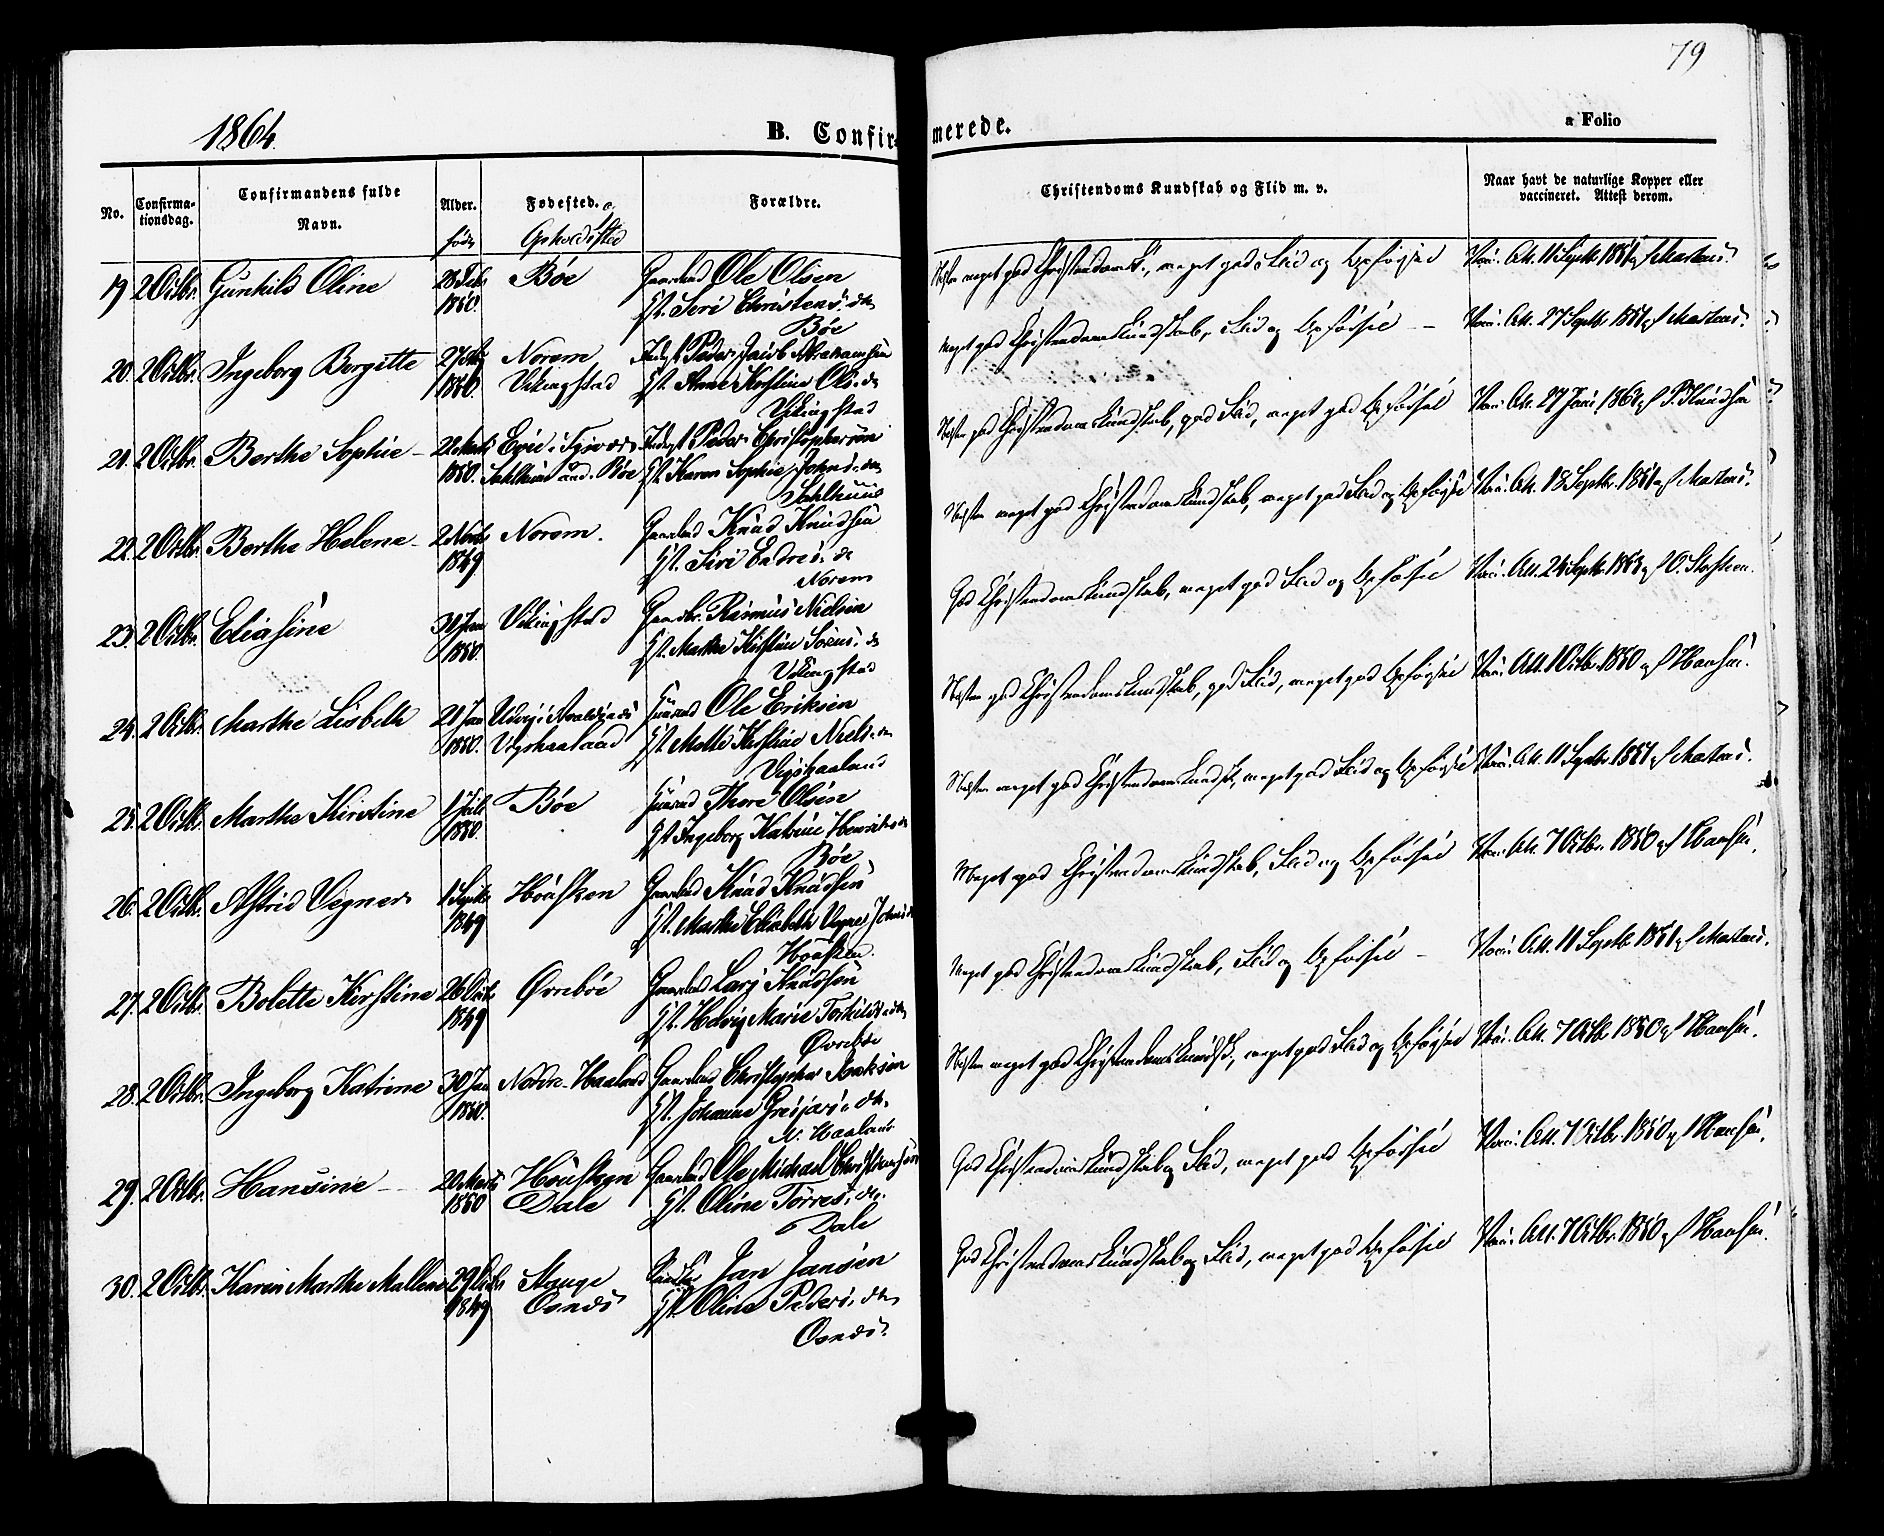 79
1864.
B. Confirmerede.
a Folio
No.
Confirma-
tionsdag.
Confirmandens fulde
Navn.
Alder.
født
Fødested. o.
Opholdssted
Forældre.
Christendoms Kundskab og Flid m. v.
Naar havt de naturlige Kopper eller
vaccineret. Attest derom.
19 2 Octbr. Gunhild Oline 28 Febr 1850. Bøe Gaardmd Ole Olsen
Gst. Siri Christens. dr
Bøe
Næsten meget god Christendomsk., meget god Flid og Opførsel Vacc. Att. 11 Septb 1851 af Mertens.
20. 2 Octbr. Ingeborg Bergitte 1850. Norem Peder Jacob Abrahamsen
Vikingstad Gst. Anne Kirstine Ols. dr
Vikingstad
Meget god Christendomskundskab, Flid og Opførsel – Vacc. Att. 27 Septb 1851 af Mertens.
21. 2 Octbr. Berthe Sophie – 22 Marts Eeie i Tysvær Indst Peder Christophersen
1850. Gst. Karen Sophie Johns. dr
Næsten god Christendomskundskab, god Flid, meget god Opførsel Vacc. Att. 27 Juni 1862 af P. Knudsen
22. 2 Octbr. Berthe Helene – 2 Novb 1849 Norem. Gaardmd Knud Knudsen
Gst. Siri Endres. dr
Norem
Næsten meget god Christendomskundskab, meget god Flid og Opførsel Vacc. Att. 18 Septbr. 1851 af Mertens.
23. 2 Octbr. Eliasine 1850. Vikingstad Gaardbr. Rasmus Nielsen
Gst. Marthe Kirstine Sørens. dr
Vikingstad
God Christendomskundskab, meget god Flid og Opførsel Vacc. Att. 24 Septb. 1853 af O.
24. 2 Octbr. Marthe Lisbeth 21 Jan 1850. Huusmd Ole Eriksen
Gst. Malle Kirstine Niels. dr
Næsten god Christendomskundskab, god Flid, meget god Opførsel Vacc. Att. 1 Octbr. 1850 af Hansen.
25. 2 Octbr. Marthe Kirstine 1 Juli 1850. Bøe Huusmd Thore Olsen
Gst Ingeborg Katrine Henriks dr
Bøe
Næsten meget god Christendomskundsk., meget god Flid og Opførsel Vacc. Att. 11 Septbr. 1851 af Mertens.
26. 2 Octbr. Astrid Vegner 1 Septb 1849 Housken Gaardmd Knud Knudsen
Gst. Marthe Elisabeth Vegner Johns dr
Housken.
Meget god Christendomskundskab, Flid og Opførsel Vacc. Att. 7 Octbr. 1850 af Hansen.
27. 2 Octbr. Bolette Kirstine 26 Octb 1849 Øvrebøe Gaardmd Lars Knudsen
Gst. Helvig Marie Torkilds. dr
Øvrebøe
Meget god Christendomskundskab, Flid og Opførsel – Vacc. Att. 11 Septb 1851 af Mertens.
28. 2 Octbr. Ingeborg Katrine 30 Jan 1850. Nordre-Haaland Gaardmd Christopher Isaksen
Gst. Johanne Gresjars. dr.
N. Haaland
Næsten meget god Christendomskundsk., meget god Flid og Opførsel Vacc. Att. 7 Octb 1850 af Hansen.
29. 2 Octbr. Hansine – 20 Marts 1850 Housken Gaardmd Ole Michael Christensen
Dale Gst. Oline Torres. dr.
Dale
God Christendomskundskab og Flid, meget god Opførsel Vacc. Att. 7 Octbr. 1850 af Hansen.
30. 2 Octbr. Karen Marthe Mallene 1849 Stange Jan Jansen
Osnes Gst. Oline Peders. dr
Osnes.
God Christendomskundskab og Flid, meget god Opførsel Vacc. Att. 7 Octbr. 1850 af Hansen.